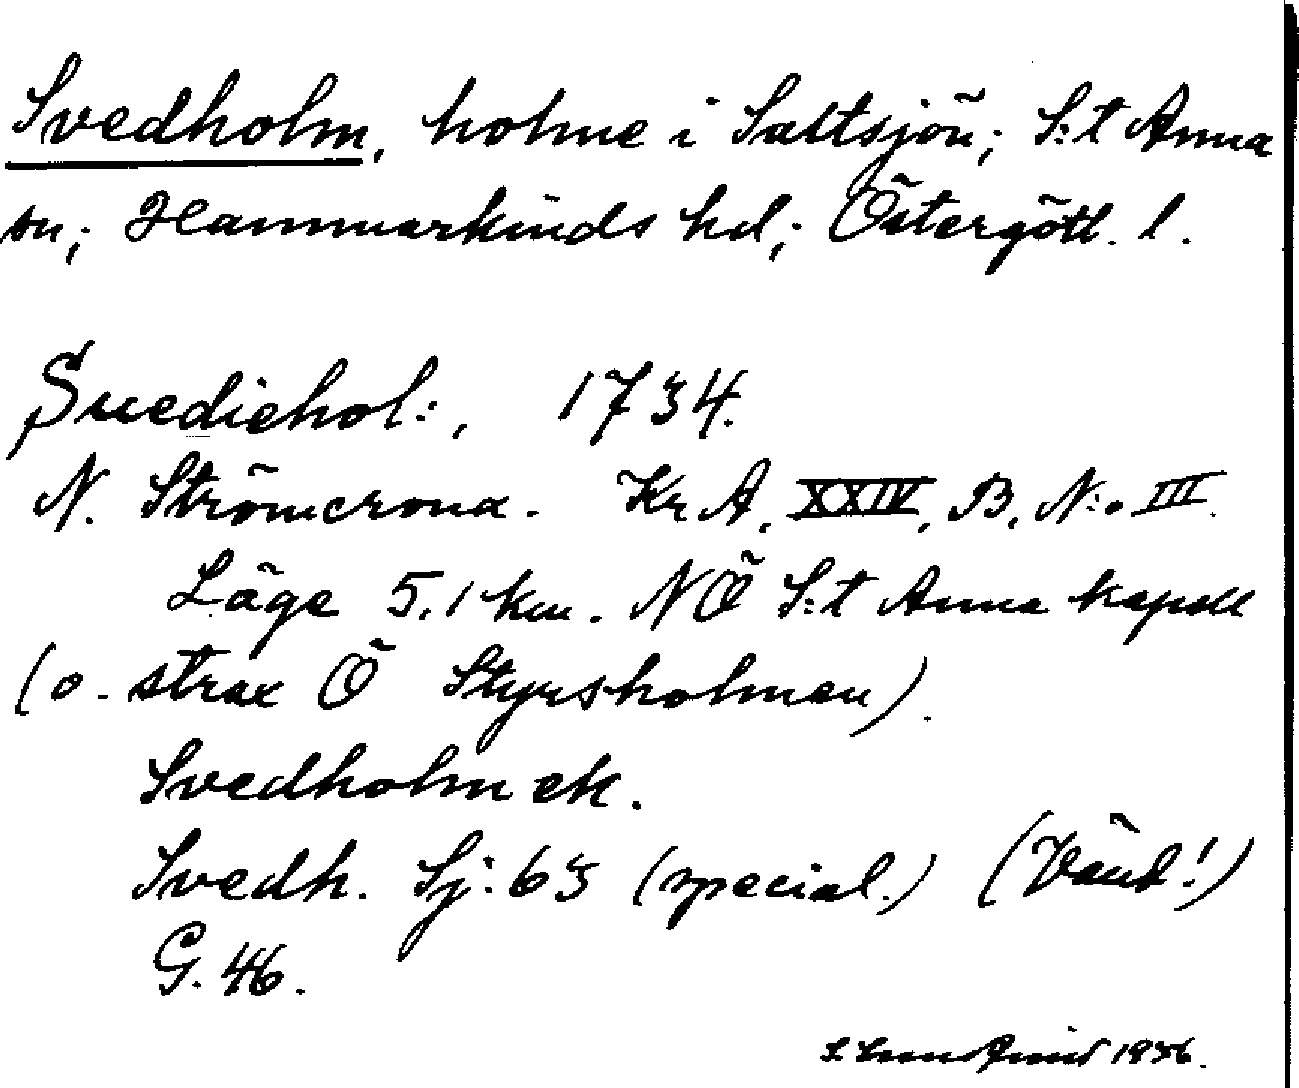 Svedholm, holme i Saltsjön; S:t Anna
sn; Hammarkinds hd; Östergötl. l.
Svediehol:, 1734.
N. Strömcrona. Kr A, XXIV, B, N:o III.
Läge 5,1 km. NÖ S:t Anna kapell
(o. strax Ö Styrsholmen).
Svedholm ek.
Svedh. Sj: 63 (special.) (Vänd!)
G. 46.
1936.